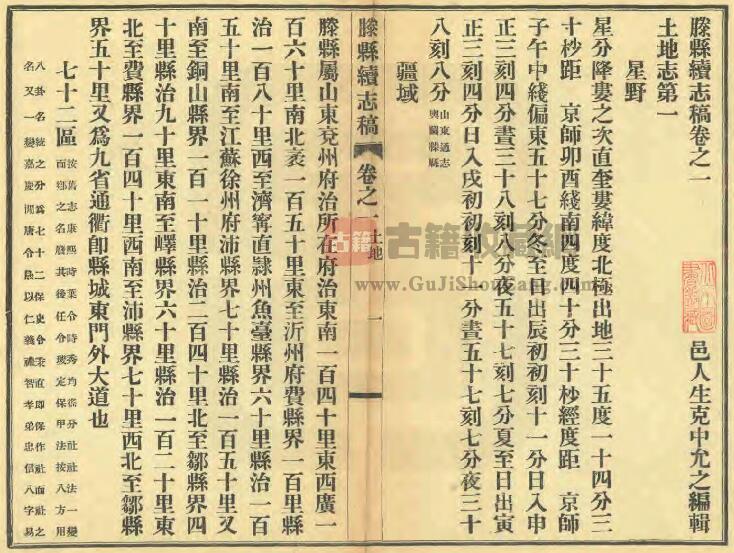 滕縣續志稿卷之一
土地志第一
邑人生克中允之編輯
星野
星分降婁之次直奎婁緯度北極出地三十五度一十四分三
十秒距　京師卯酉綫南四度四十分三十秒經度距　京師
子午中綫偏東五十七分冬至日出辰初初刻十一分日入申
正三刻四分晝三十八刻八分夜五十七刻七分夏至日出寅
正三刻四分日入戌初初刻十一分晝五十七刻七分夜三十
八刻八分山東通志輿圖滕縣
疆域
滕縣續志稿
卷之一土地
一
滕縣屬山東兗州府治所在府治東南一百四十里東西廣一
百六十里南北袤一百五十里東至沂州府費縣界一百里縣
治一百八十里西至濟寧直隸州魚臺縣界六十里縣治一百
五十里南至江蘇徐州府沛縣界七十里縣治一百五十里又
南至銅山縣界一百一十里縣治二百四十里北至鄒縣界四
十里縣治九十里東南至嶧縣界六十里縣治一百二十里東
北至費縣界一百四十里西南至沛縣界七十里西北至鄒縣
界五十里又爲九省通衢卽縣城東門外大道也
七十二區按舊志康熙時葉令時秀均徭分社社法一變
而鄉之名廢其後任令璣定保甲法按八方用
八卦名統之分爲七十二保史令秉直卽保作社而社之
名又一變嘉慶間唐令恳以仁義禮智孝弟忠信八字易
古籍
古籍收藏網
www.GuJiShouCang.com